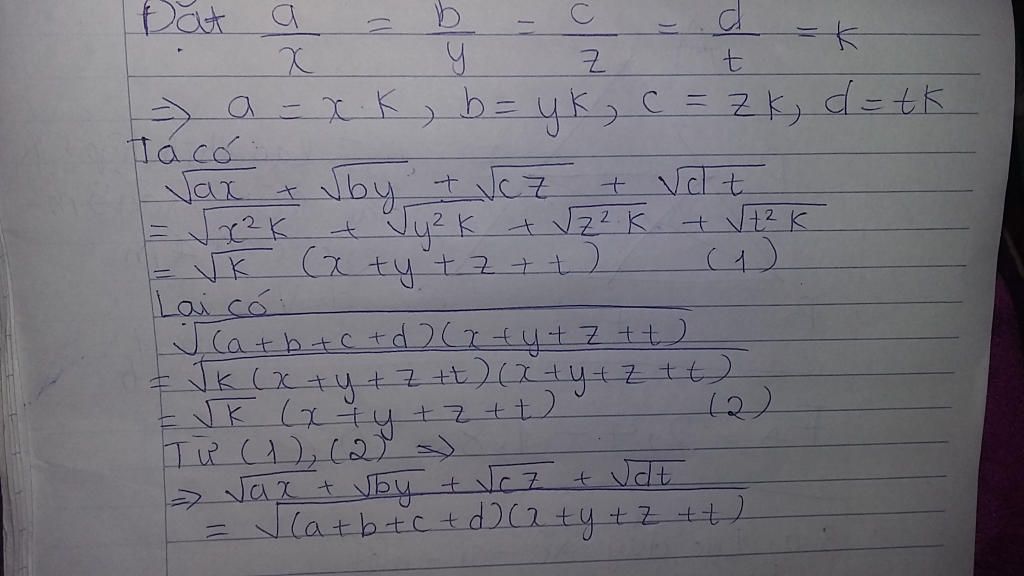 Đặt a/x = b/y = c/z = d/t = k
=> a = x.k, b = yk, c = zk, d = tk
Ta có:
√ax + √by + √cz + √dt
= √x²k + √y²k + √z²k + √t²k
= √k (x+y+z+t) (1)
Lại có:
√(a+b+c+d)(x+y+z+t)
= √k(x+y+z+t)(x+y+z+t)
= √k (x+y+z+t) (2)
Từ (1), (2) =>
=> √ax + √by + √cz + √dt
= √(a+b+c+d)(x+y+z+t)